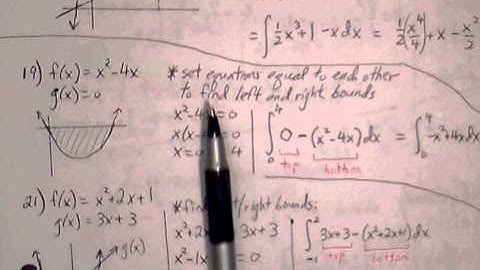 = ∫ 1/2 x³ + 1 - x dx = 1/2 (x⁴/4) + x - x²/2
19) f(x) = x² - 4x * set equations equal to each other
g(x) = 0 to find left and right bounds
x² - 4x = 0
x(x - 4) = 0 ∫₀⁴ 0 - (x² - 4x) dx = ∫₀⁴ -x² + 4x dx
x = 0 4
top bottom
21) f(x) = x² + 2x + 1 * find left/right bounds:
g(x) = 3x + 3 x² + 2x
∫₋₁² 3x + 3 - (x² + 2x + 1) dx
g(x) x² - 1x = 0 top bottom